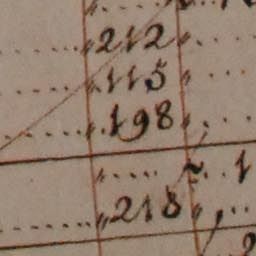 212
115
198
1
218